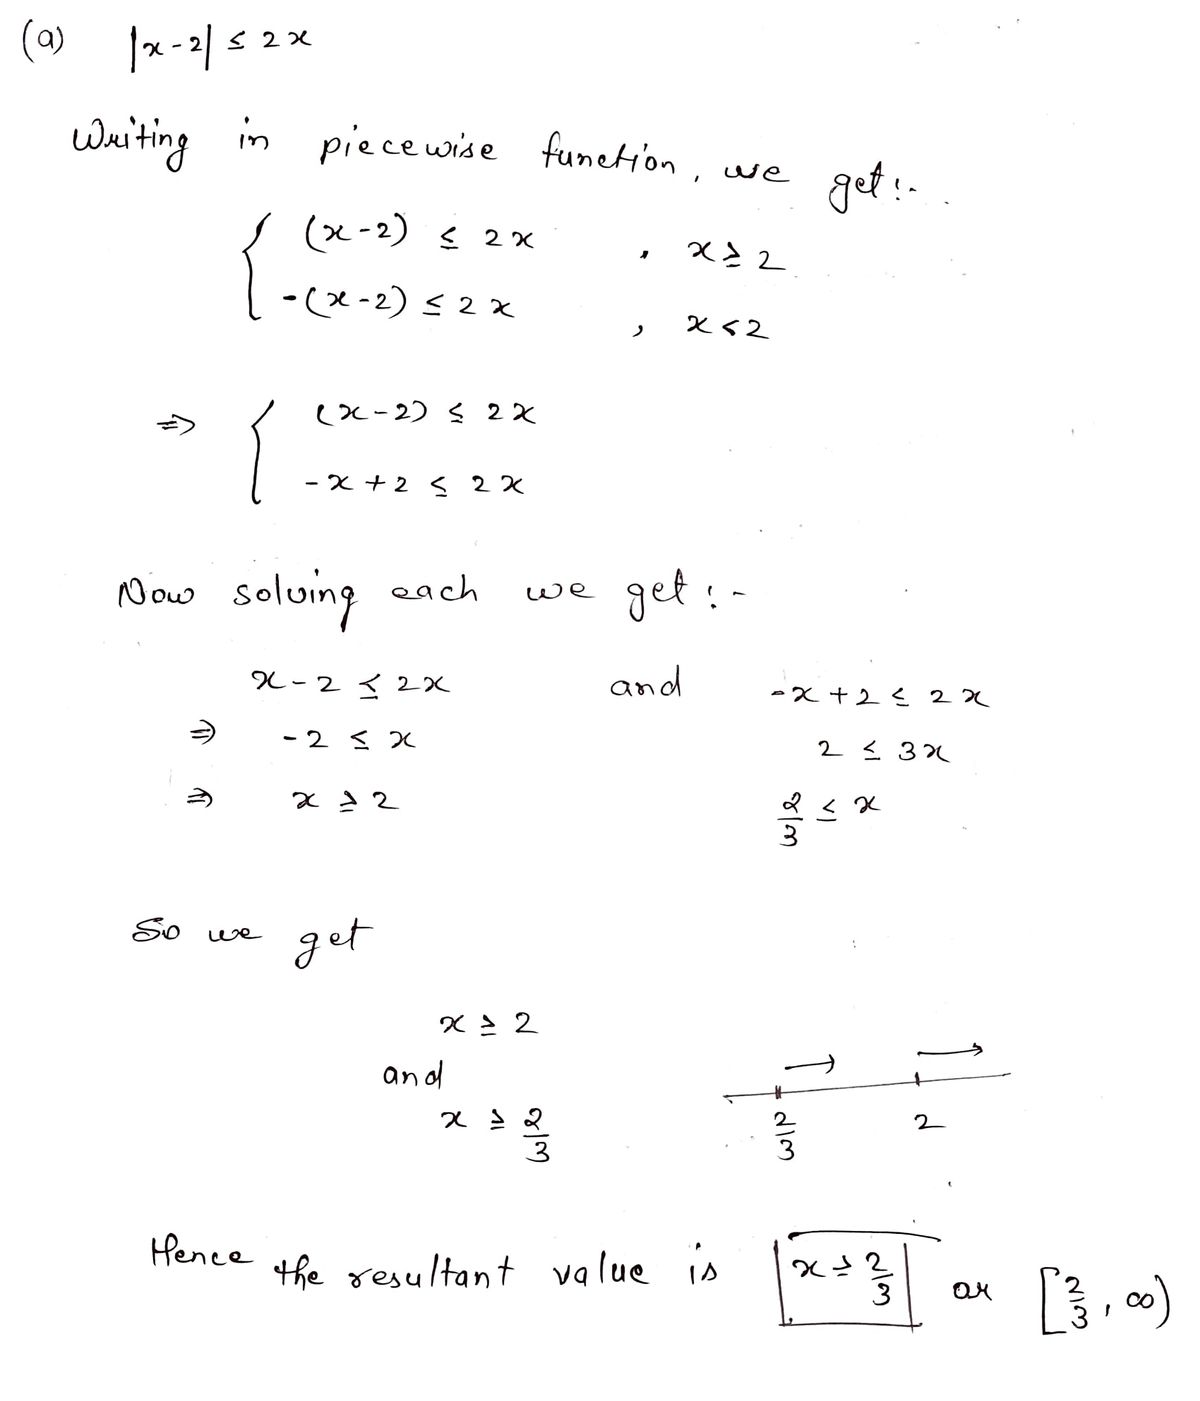 (a) |x-2| ≤ 2x
Writing in piecewise function, we get:-
(x-2) ≤ 2x , x ≥ 2
-(x-2) ≤ 2x , x < 2
⇒ (x-2) ≤ 2x
-x+2 ≤ 2x
Now solving each we get:-
x-2 ≤ 2x and -x+2 ≤ 2x
⇒ -2 ≤ x 2 ≤ 3x
⇒ x ≥ 2 2/3 ≤ x
So we get
x ≥ 2
and
x ≥ 2/3
2/3 2
Hence the resultant value is x ≥ 2/3 or [2/3, ∞)